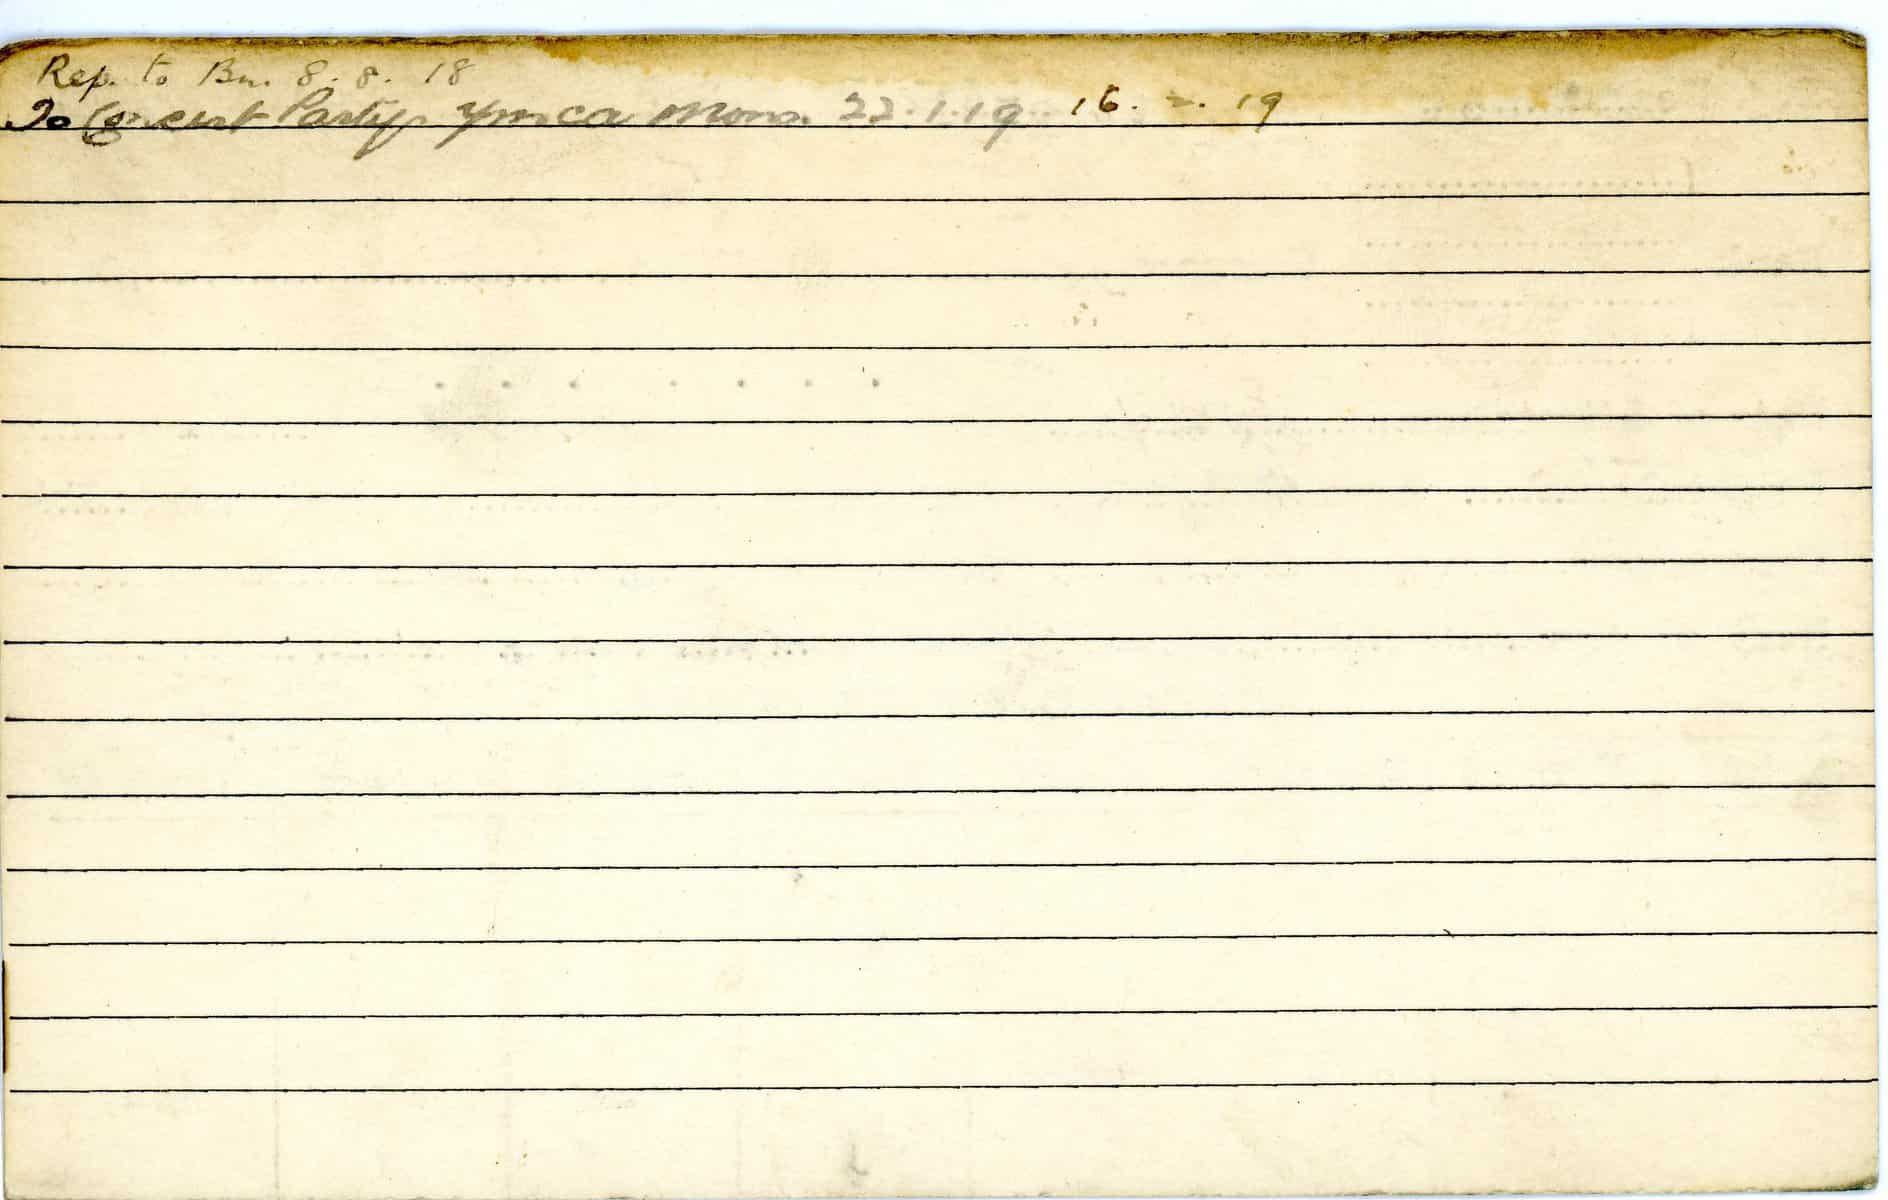 Rep. to Bn. 8. 8. 18
To Concert Party Ymca Mons. 22.1.19 16. 2. 19